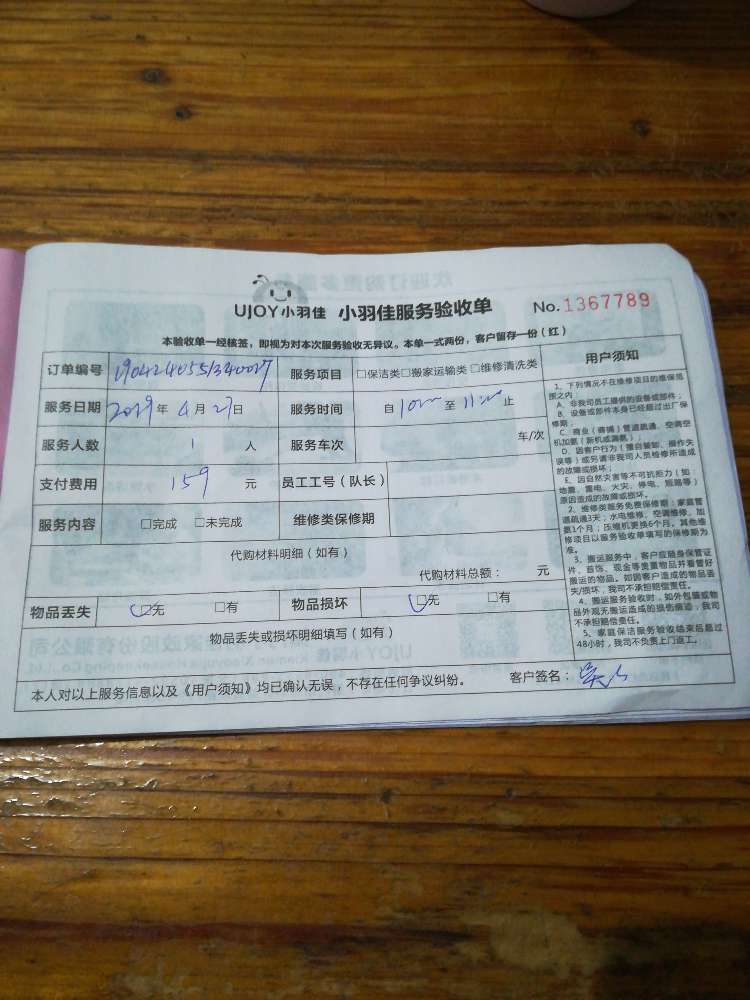 UJOY小羽佳 小羽佳服务验收单 No.1367789
本验收单一经核签，即视为对本次服务验收无异议。本单一式两份，客户留存一份（红）
订单编号 服务项目 □保洁类□搬家运输类□维修清洗类
服务日期 2019年4月27日 服务时间 自 至 止
服务人数 1 人 服务车次 车/次
支付费用 159 元 员工工号（队长）
服务内容 □完成 □未完成 维修类保修期
代购材料明细（如有）
代购材料总额： 元
物品丢失 □无 □有 物品损坏 □无 □有
物品丢失或损坏明细填写（如有）
本人对以上服务信息以及《用户须知》均已确认无误，不存在任何争议纠纷。 客户签名：
用户须知
1、下列情况不在维修项目的维保范
围之内：
A、非我司员工提供的设备或部件；
B、设备或部件本身已经超过出厂保
修期；
C、商业（商铺）管道疏通、空调空
机加氨（新机或漏氨）；
D、因客户行为（擅自警卸、操作失
误等）或另请非我司人员检修所造成
的故障或损坏；
E、因自然灾害等不可抗拒力（如：
地震、雷电、火灾、停电、短路等）
原因造成的故障或损坏。
2、维修类服务免费保修期：家庭管
道疏通3天；水电维修、空调维修、加
氨1个月；压缩机更换6个月。其他维
修项目以服务验收单填写的保修期为
准。
3、搬运服务中，客户应随身保管证
件、首饰、现金等贵重物品并看管好
搬运的物品。如因客户造成的物品丢
失/损坏，我司不承担赔偿责任。
4、搬运服务验收时，如外包装或物
品外观无搬运造成的损伤痕迹，我司
不承担赔偿责任。
5、家庭保洁服务验收结束后超过
48小时，我司不负责上门返工。